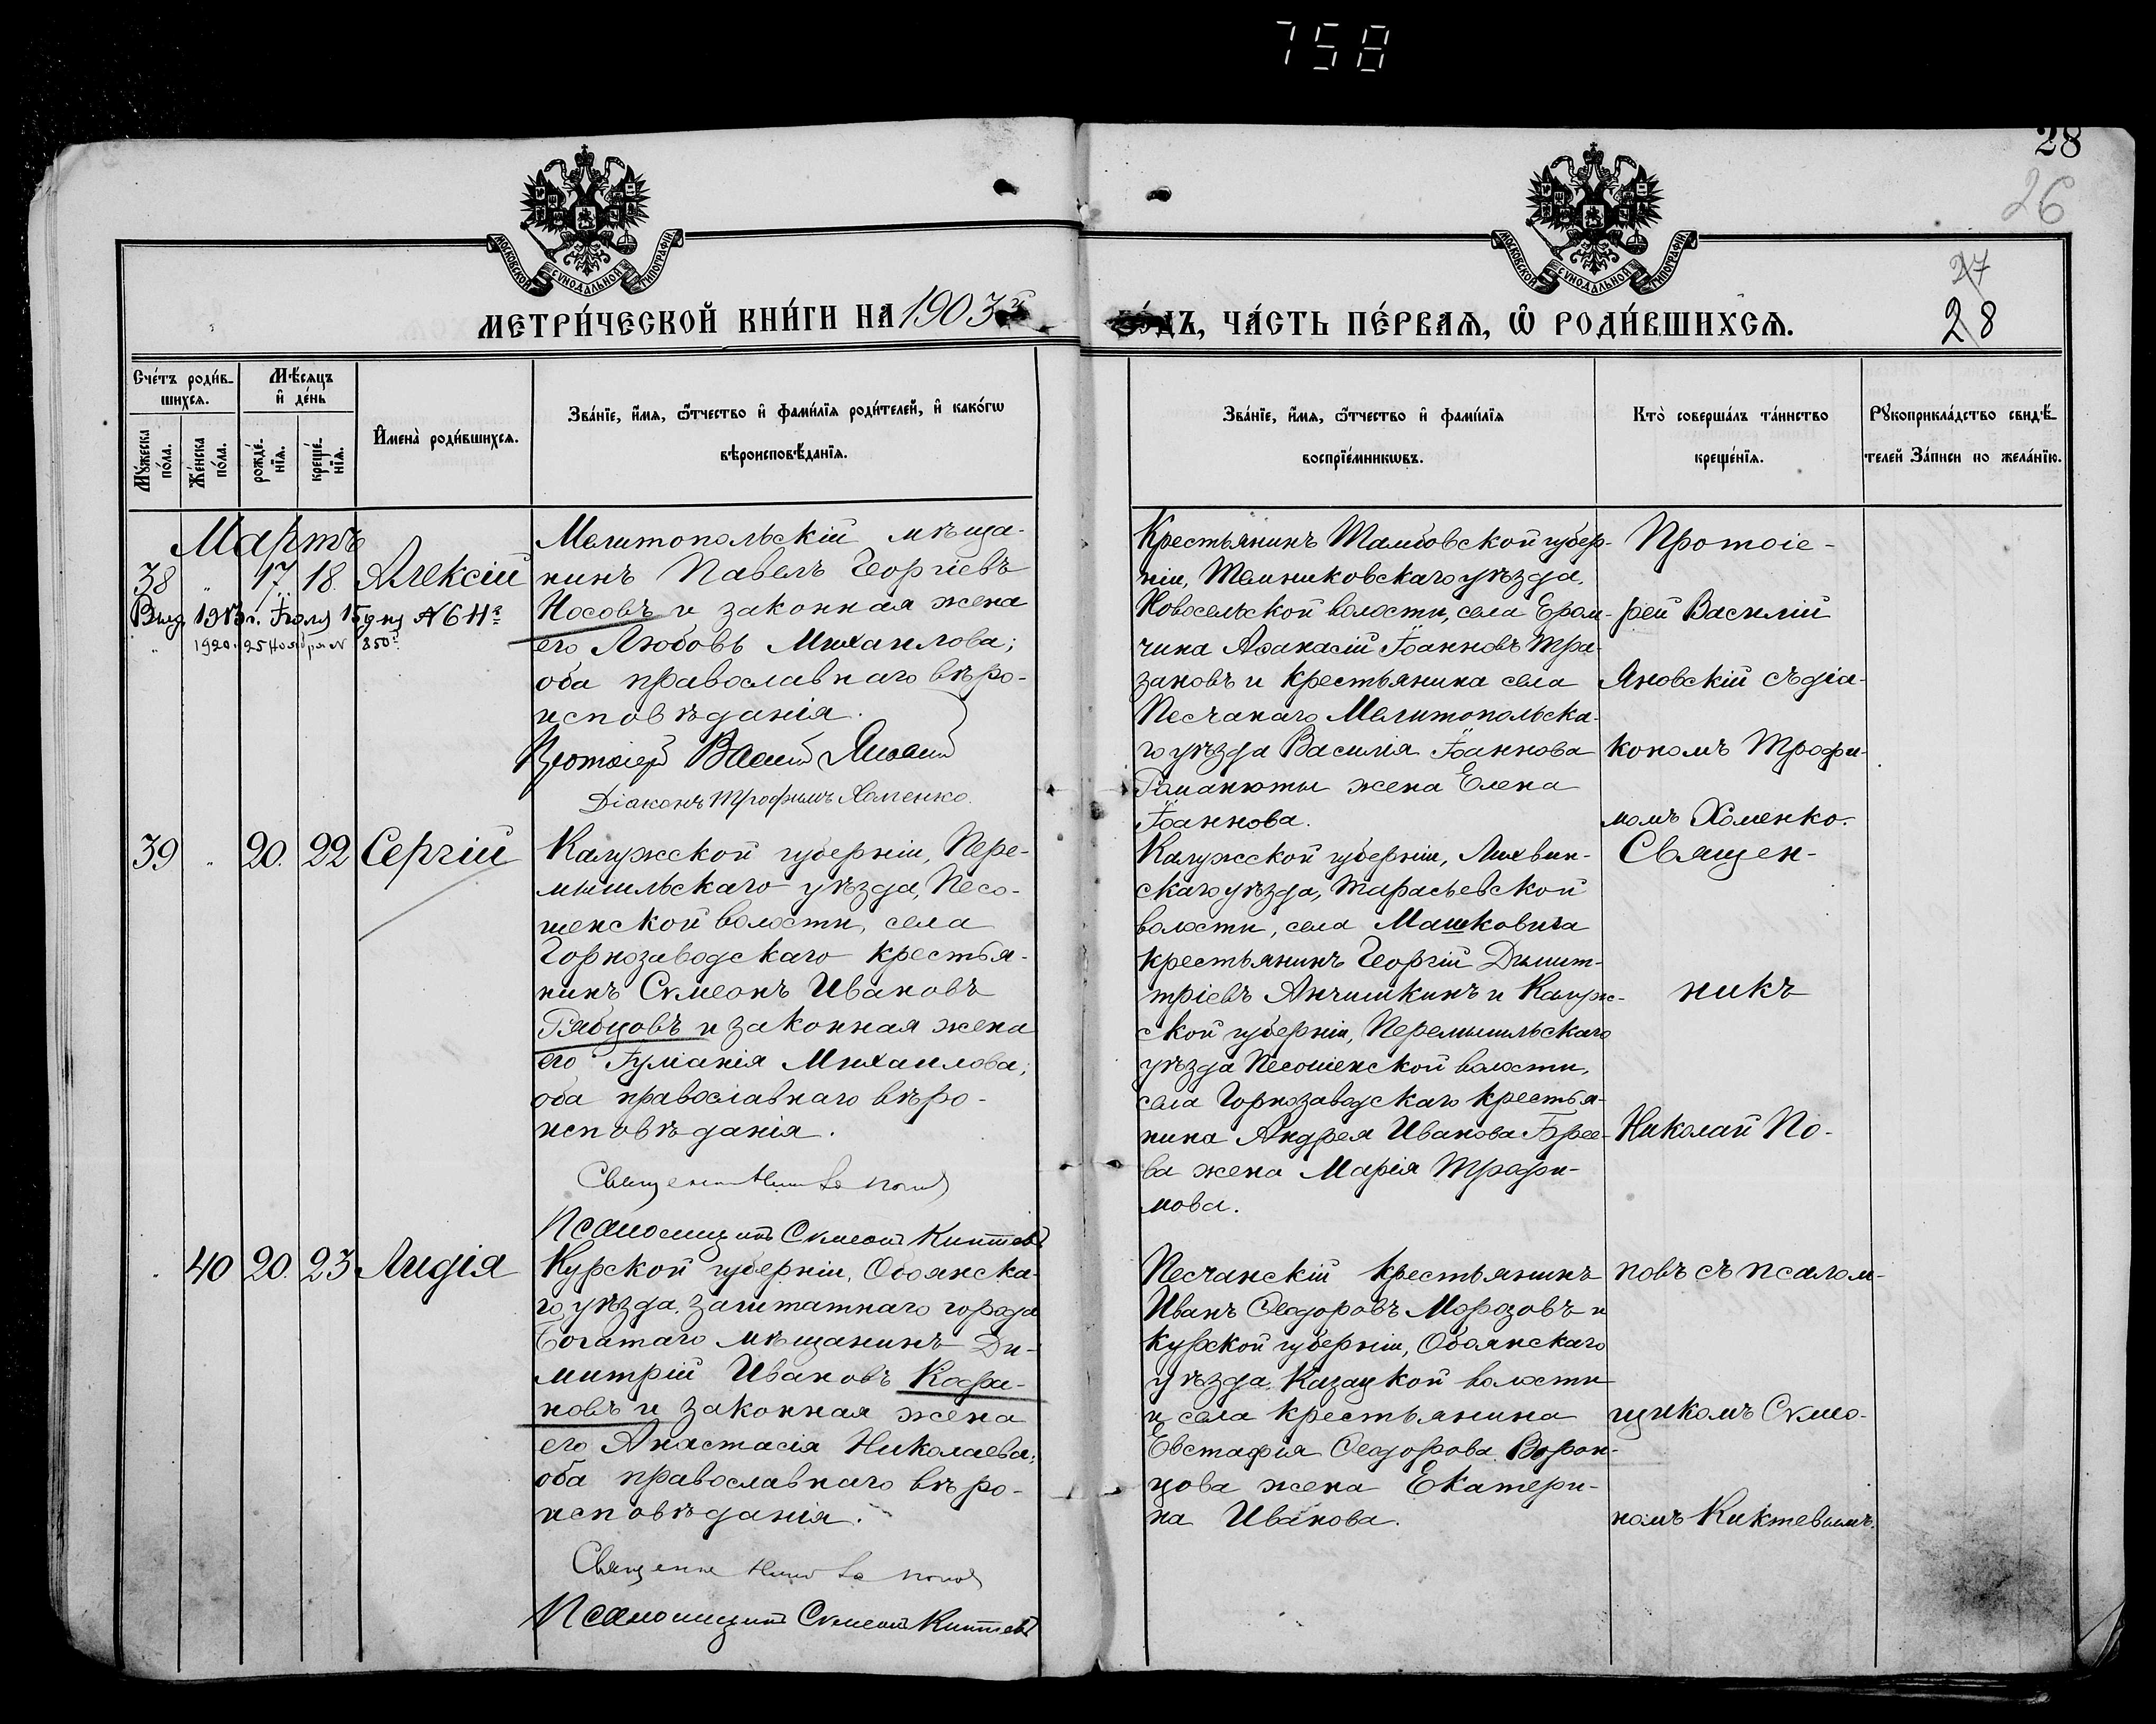 758
28
26
27
28
МОСКОВСКОЙ СѴНОДАЛЬНОЙ ТИПОГРАФІИ.
МОСКОВСКОЙ СѴНОДАЛЬНОЙ ТИПОГРАФІИ.
МЕТРИ́ЧЕСКОЙ КНИ́ГИ НА 1903й
го́дъ, ЧА́СТЬ ПЕ́РВАѦ, Ѡ҆ РОДИ́ВШИХСѦ.
Сче́тъ роди́в-
шихсѧ.
Мѣ́сѧцъ
и҆ де́нь
Мꙋ́жеска
по́ла.
Же́нска
по́ла.
рожде́-
нїѧ.
креще́-
нїѧ.
И҆мена̀ роди́вшихсѧ.
Зва́нїе, и҆́мѧ, ѻ҆́тчество и҆ фами́лїѧ роди́телей, и҆ како́гѡ
вѣроисповѣ́данїѧ.
Зва́нїе, и҆́мѧ, ѻ҆́тчество и҆ фами́лїѧ
воспрїе́мникѡвъ.
Кто̀ соверша́лъ та́инство
креще́нїѧ.
Рꙋкоприкла́дство свидѣ́-
телей За́писи по жела́нїю.
Мартъ
38 " 17. 18. Алексій
Выд. 1913 г. Іюля 15 дня №
1920. 25 Ноября № 850
Мелитопольскій мѣща-
нинъ Павелъ Георгіевъ
Носовъ и законная жена
его Любовь Михаилова;
оба православнаго вѣро-
исповѣданія.
Протоіерей Василій Яновскій
Діаконъ Трофимъ Хоменко.
Крестьянинъ Тамбовской губер-
ніи, Темниковскаго уѣзда,
Новосельской волости, села Ером-
чина Аѳанасій Іоанновъ Тра-
зановъ и крестьянина села
Песчанаго Мелитопольска-
го уѣзда Василія Іоаннова
Романюты жена Елена
Іоаннова.
Протоіе-
рей Василій
Яновскій съ діа-
кономъ Трофи-
момъ Хоменко.
39 " 20. 22 Сергій
Калужской губерніи, Пере-
мышльскаго уѣзда, Песо-
шенской волости, села
Горнозаводскаго крестья-
нинъ Сѵмеонъ Ивановъ
Рябцовъ и законная жена
его Іуліанія Михаилова;
оба православнаго вѣро-
исповѣданія.
Священникъ Николай Поповъ
Псаломщикъ Сѵмеонъ Киктевъ
Калужской губерніи, Лихвин-
скаго уѣзда, Тарасьевской
волости, села Машковича
крестьянинъ Георгій Димит-
тріевъ Анчишкинъ и Калуж-
ской губерніи, Перемышльскаго
уѣзда Песошенской волости,
села Горнозаводскаго крестья-
нина Андрея Иванова Брее-
ва жена Марія Трофи-
мова.
Священ-
никъ
Николай По-
повъ съ псалом-
щикомъ Сѵмео-
номъ Киктевымъ.
40 20. 23 Лидія
Курской губерніи, Обоянска-
го уѣзда, заштатнаго города
Богатаго мѣщанинъ Ди-
митрій Ивановъ Кофа-
новъ и законная жена
его Анастасія Николаева;
оба православнаго вѣро-
исповѣданія.
Священникъ Николай Поповъ
Псаломщикъ Сѵмеонъ Киктевъ
Песчанскій крестьянинъ
Иванъ Ѳеодоровъ Морозовъ и
Курской губерніи, Обоянскаго
уѣзда, Казацкой волости
и села крестьянина
Евстафія Ѳеодорова Ворон-
цова жена Екатери-
на Иванова.